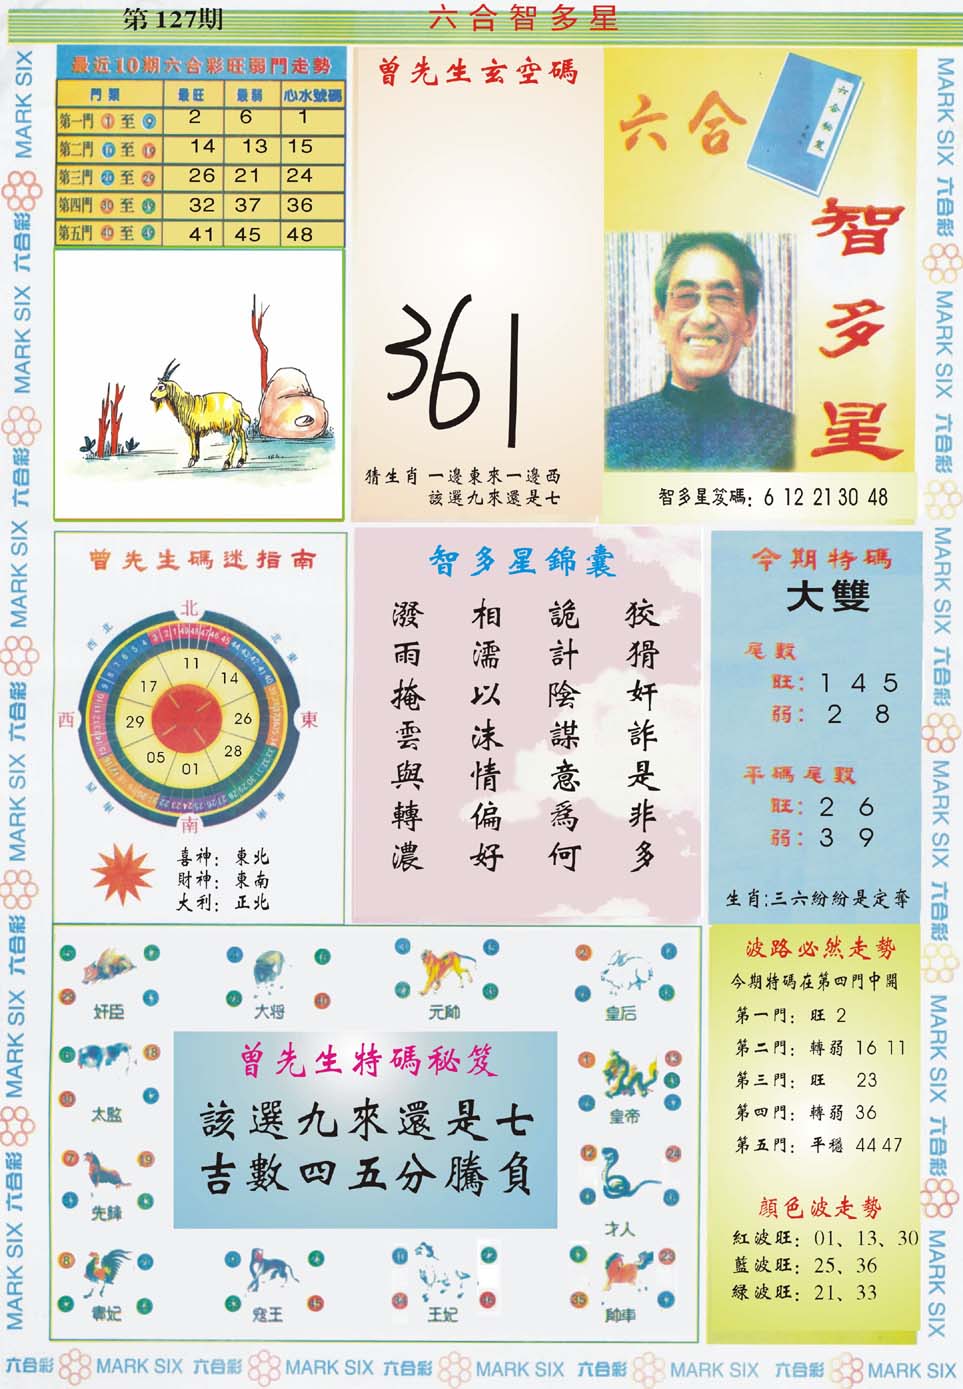 第127期
六合智多星
最近10期六合彩旺弱門走勢
門類 最旺 最弱 心水號碼
第一門 1 至 9 2 6 1
第二門 10 至 19 14 13 15
第三門 20 至 29 26 21 24
第四門 30 至 39 32 37 36
第五門 40 至 49 41 45 48
曾先生玄空碼
361
猜生肖 一邊東來一邊西
該選九來還是七
六合
六合秘笈
智多星
智多星笈碼: 6 12 21 30 48
曾先生碼迷指南
北
東
南
西
東北
西北
11
14
26
28
01
05
29
17
喜神: 東北
財神: 東南
大利: 正北
智多星錦囊
狡猾奸詐是非多
詭計陰謀意為何
相濡以沫情偏好
潑雨掩雲與轉濃
今期特碼
大雙
尾數
旺: 1 4 5
弱: 2 8
平碼尾數
旺: 2 6
弱: 3 9
生肖:三六紛紛是定奪
奸臣
大将
元帥
皇后
太監
皇帝
先鋒
才人
寇王
王妃
帥車
曾先生特碼秘笈
該選九來還是七
吉數四五分騰負
波路必然走勢
今期特碼在第四門中開
第一門: 旺 2
第二門: 轉弱 16 11
第三門: 旺 23
第四門: 轉弱 36
第五門: 平穩 44 47
顏色波走勢
紅波旺: 01、13、30
藍波旺: 25、36
緑波旺: 21、33
MARK SIX 六合彩 MARK SIX 六合彩 MARK SIX 六合彩 MARK SIX 六合彩 MARK SIX 六合彩
MARK SIX 六合彩 MARK SIX 六合彩 MARK SIX 六合彩 MARK SIX 六合彩 MARK SIX 六合彩 MARK SIX
六合彩 MARK SIX 六合彩 MARK SIX 六合彩 MARK SIX 六合彩 MARK SIX 六合彩 MARK SIX